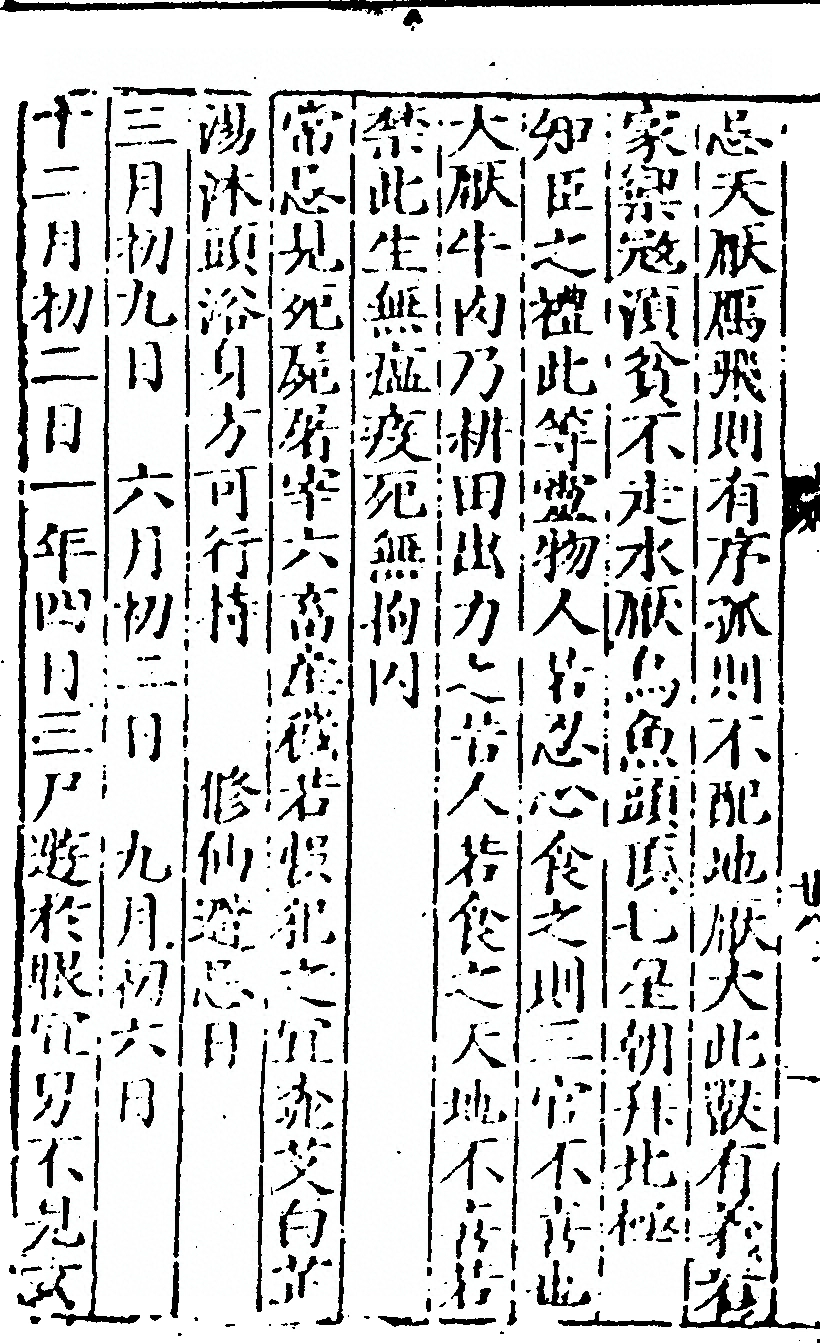 忌天厭鴈飛則有序孤則不配地厭犬此獸有義
家禦寇須貧不走水厭烏魚頭頂七星朝拜北極
知臣之禮此等靈物人若忍心食之則三官不言也
人厭牛肉乃耕田出力之苦人若食之天地不言若
禁此生無瘟疫死無拘囚
常忌見死屍屠宰六畜產穢若悞犯之宜桃艾白芷
湯沐頭浴身方可行持 修仙避忌日
三月初九日 六月初二日 九月初六日
十二月初二日一年四日三尸遊於眼宜男不見女